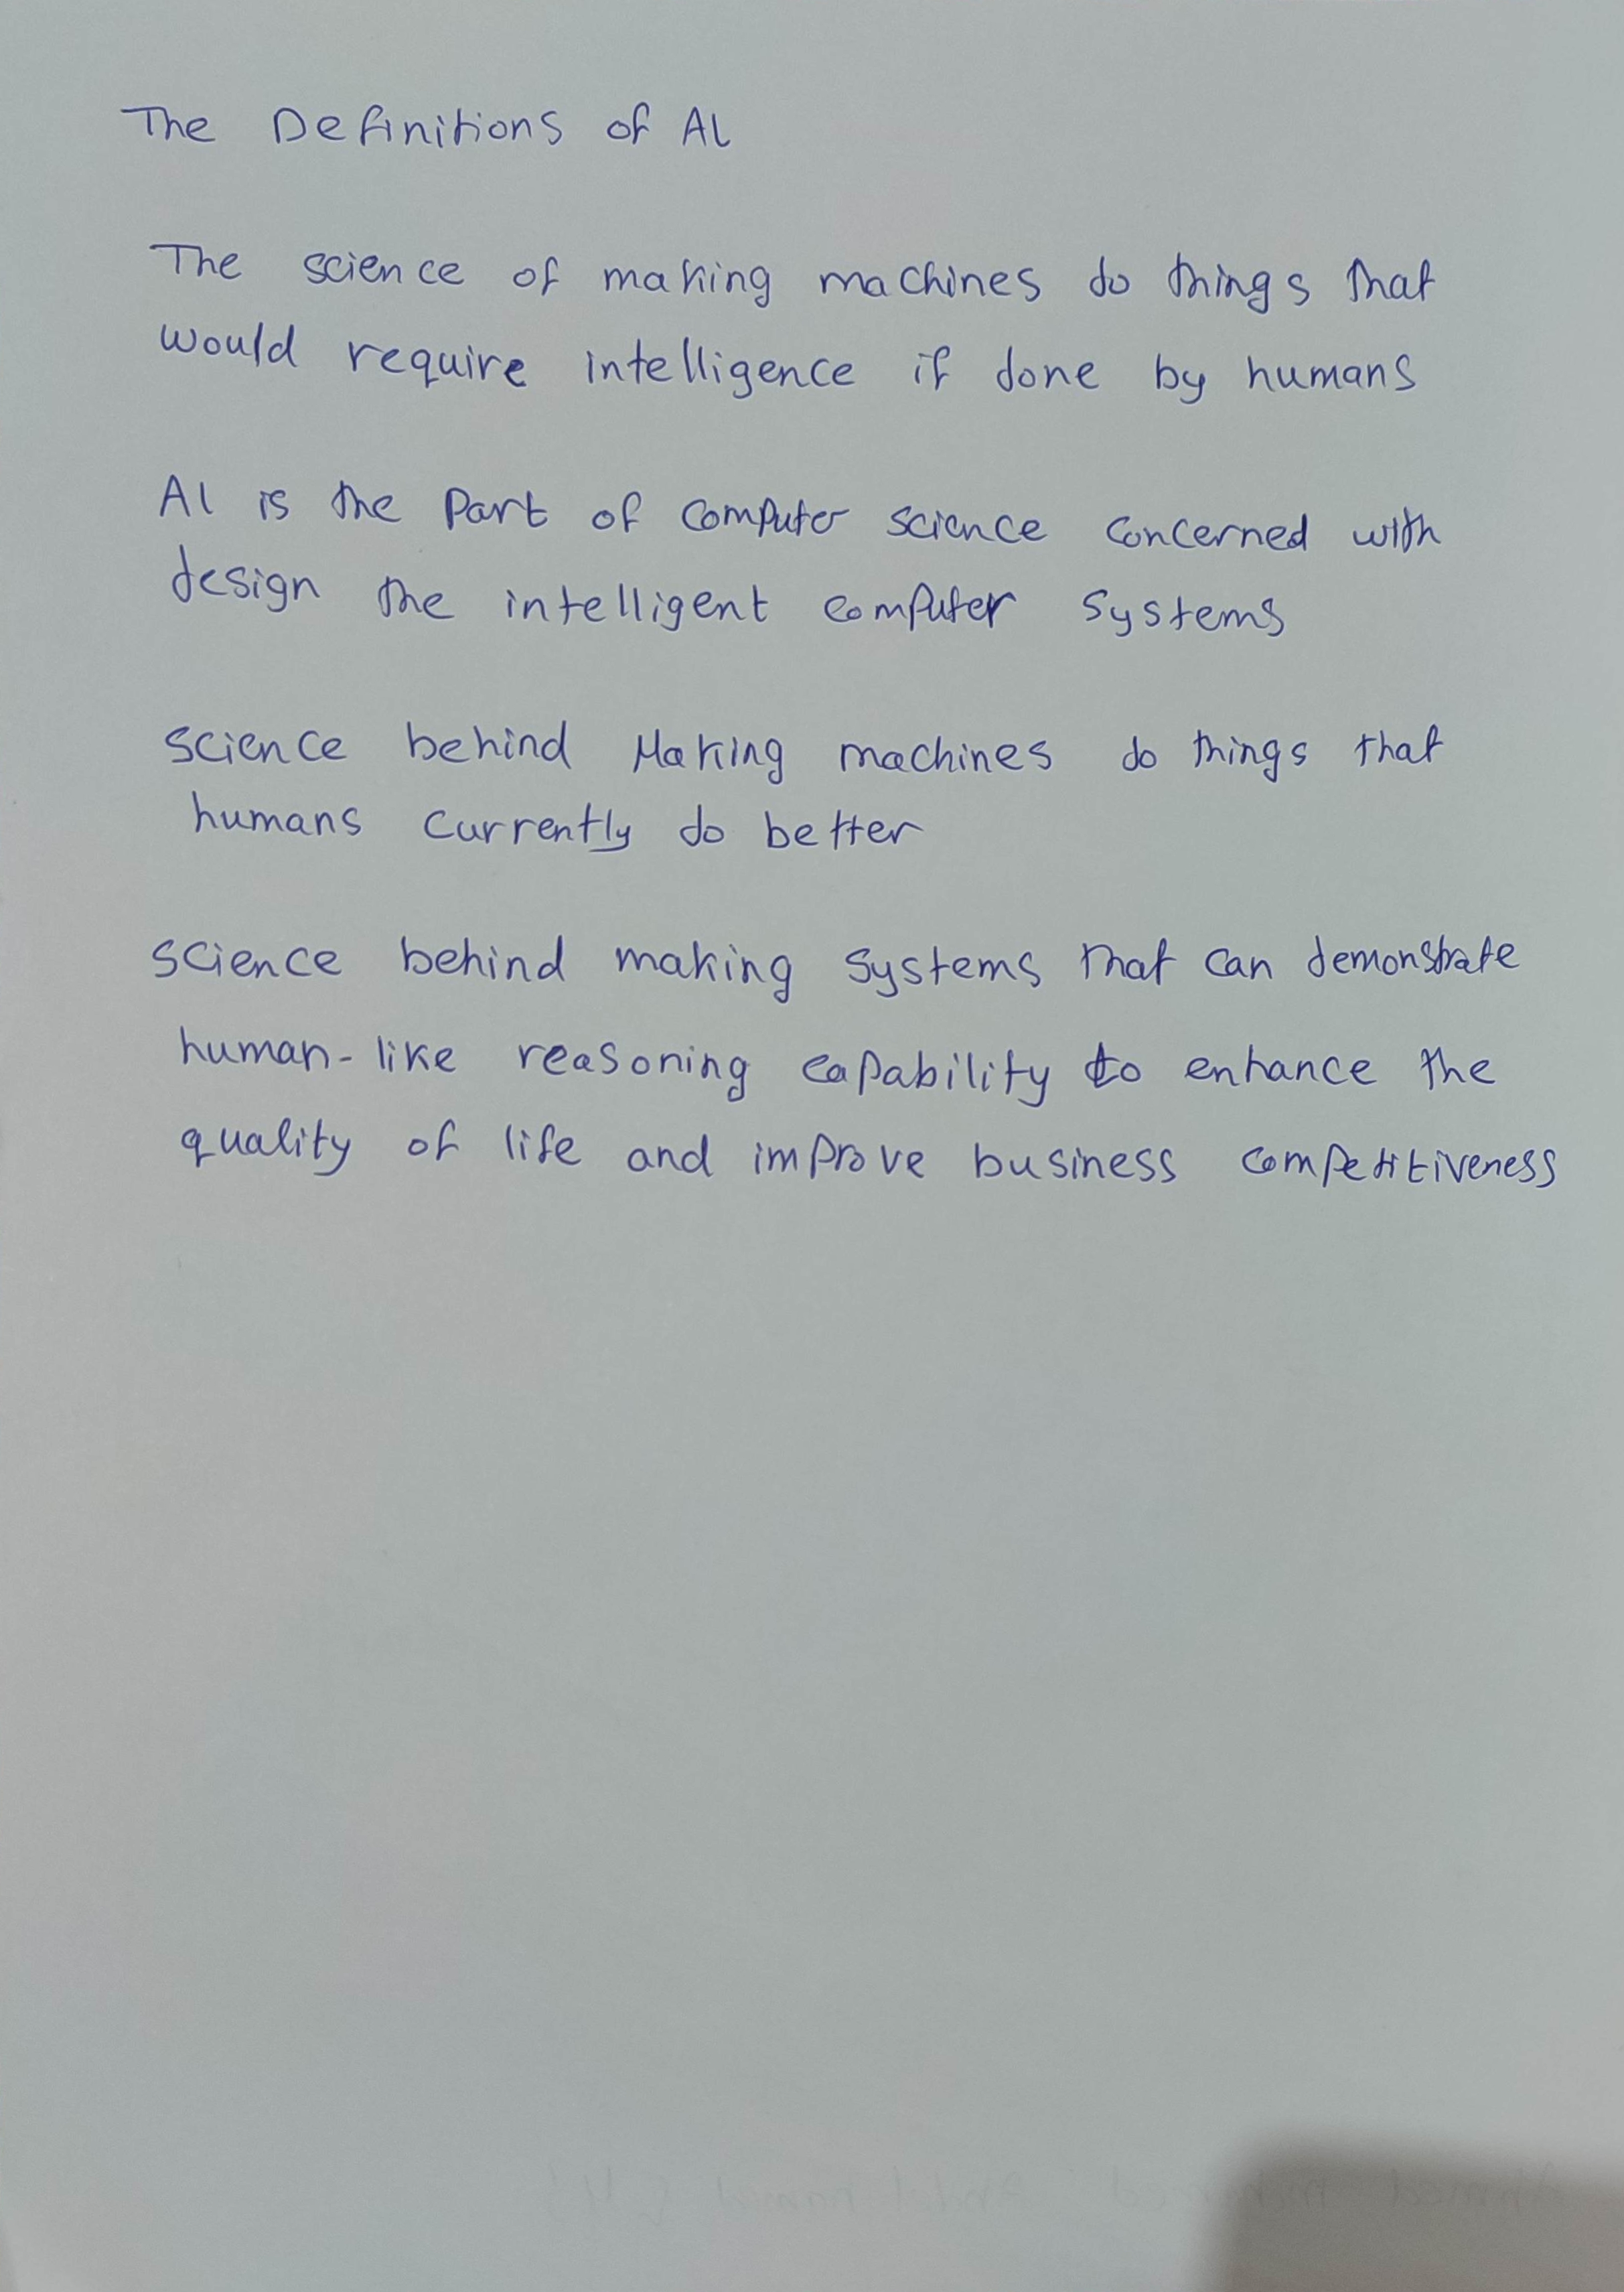 The Definitions of AI
The science of making machines do things that
would require intelligence if done by humans
AI is the Part of computer science concerned with
design the intelligent computer systems
science behind Making machines do things that
humans currently do better
science behind making systems that can demonstrate
human-like reasoning capability to enhance the
quality of life and improve business competitiveness